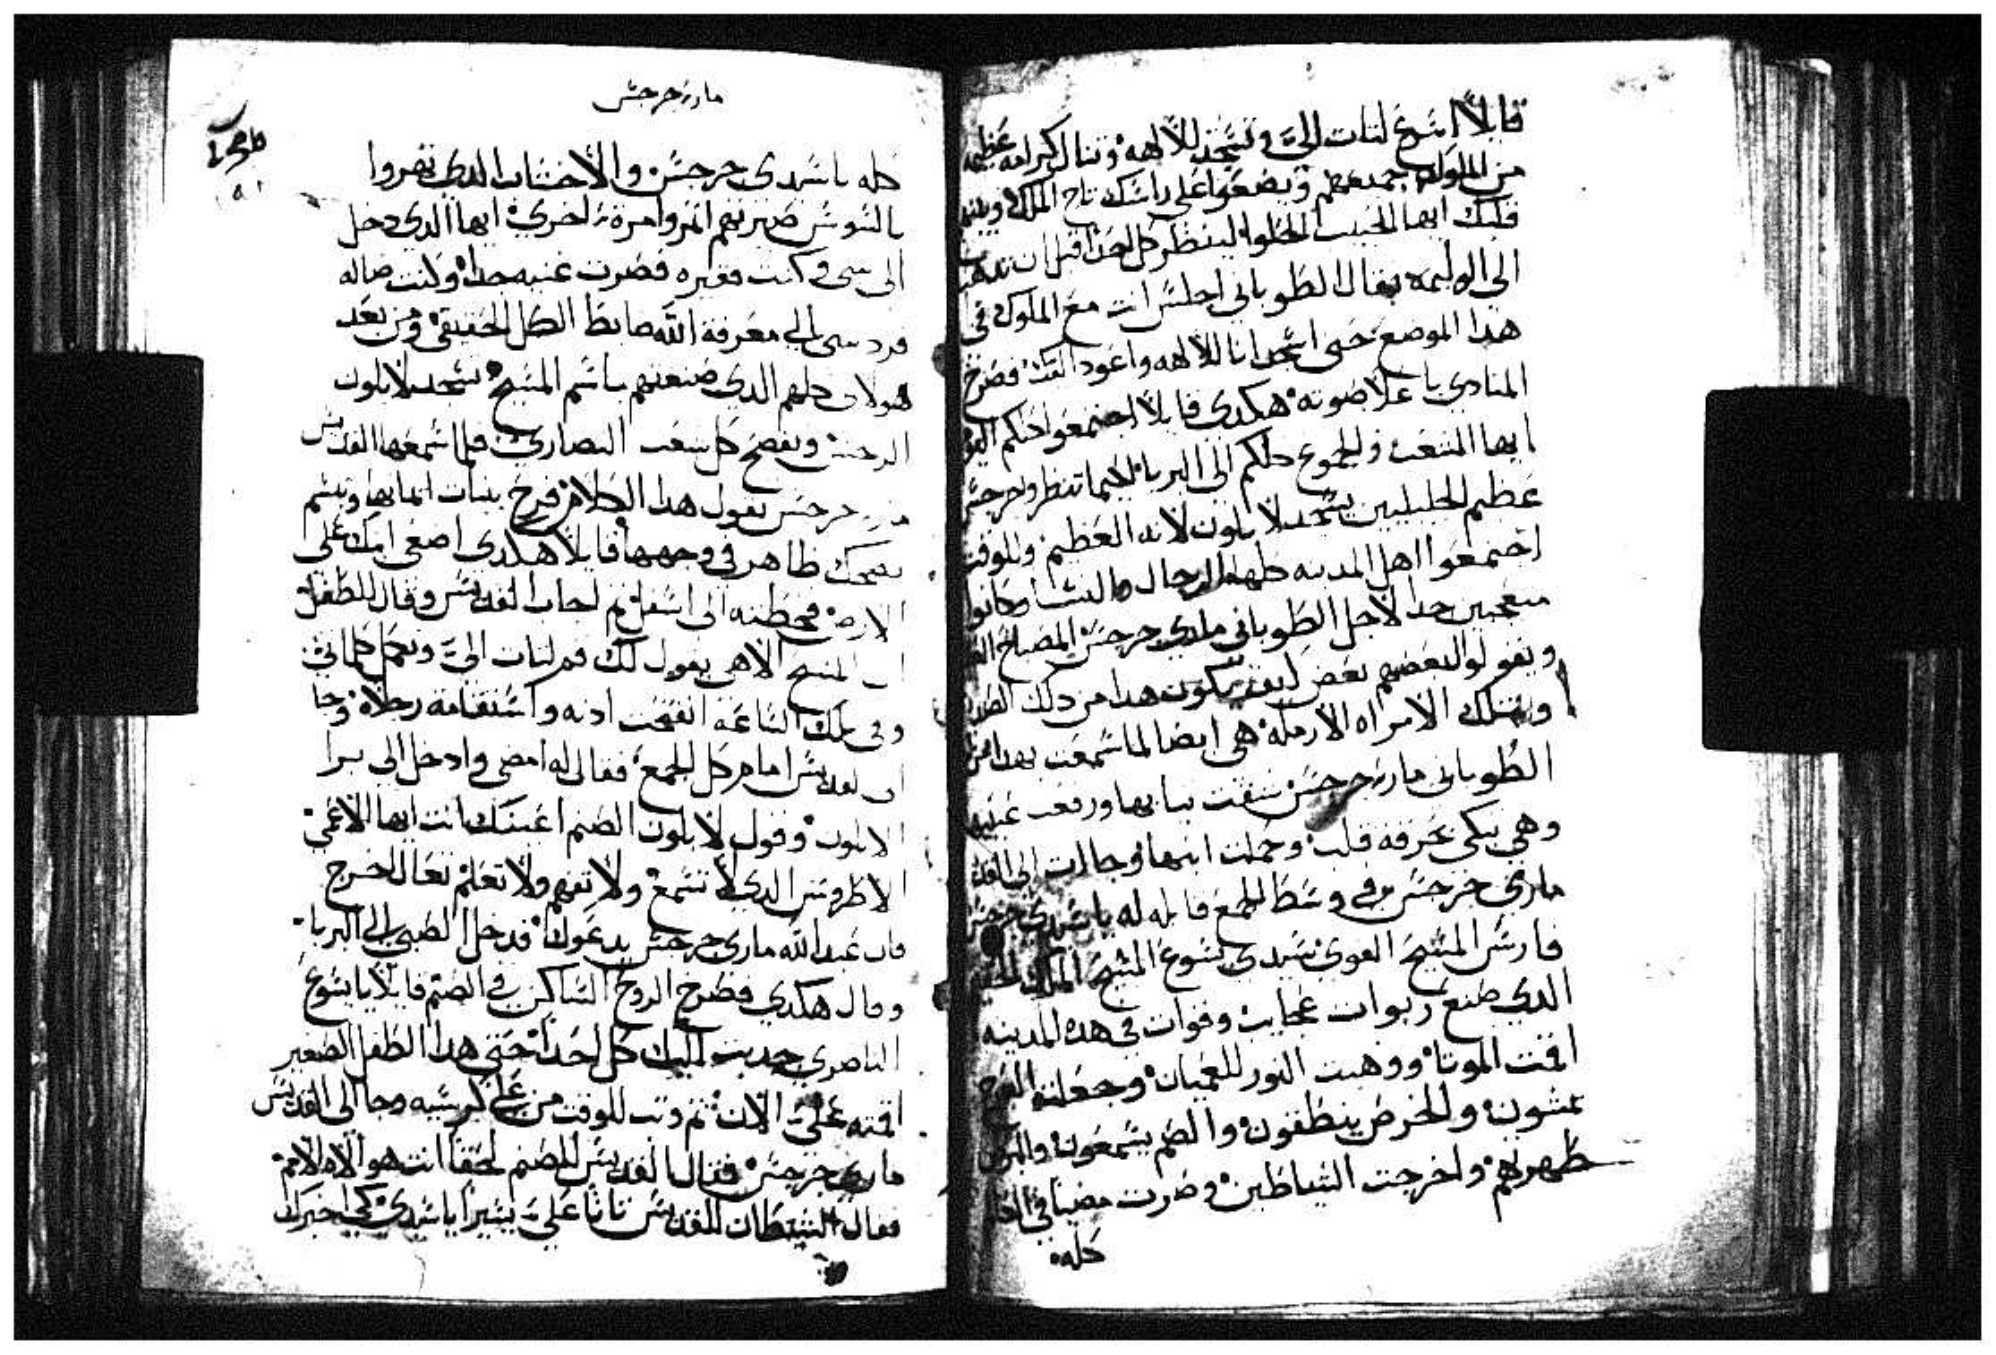 قايلاً اسرع لتات اليّ وتسجد للالهه وتنال كرامه عظيمه
من الملوك جميعهم ويضعوا على راسك تاج الملك
قلبك ايها الحبيب الحلوا لينظر كل احد قبل ان تدهب
الى الوليمه فقال الطوباني اجلس انت مع الملوك في
هدا الموضع حتى اسجد انا للالهه واعود اليك فصرخ
المنادي باعلا صوته هكدى قايلاً اجتمعوا كلكم اليوم
ايها الشعب والجموع كلكم الى البربا لكيما تنظروا جرجس
عظيم الجليليين يسجد لابلون الاله العظيم وللوقت
اجتمعوا اهل المدينه كلهم الرجال والنسا وكانوا
متعجبين جدا لاجل الطوباني ماري جرجس المصباح
ويقولوا لبعضهم بعض كيف يكون هدا من دلك الصديق
وتلك الامراه الارمله هي ايضا لما سمعت بهدا من
الطوباني ماري جرجس شقت تيابها ورفعت عينيها
وهي تبكي بحرقة قلب وحملت ابنها وجاات الى القديس
ماري جرجس في وسط الجمع قايله له يا سيدي جرجس
فارس المسيح القوي سيدي يسوع المسيح الملك الحقيقي
الدي صنع ربوات عجايب وقوات في هده المدينه
اقمت الموتا ووهبت النور للعميان وجعلت العرج
يمشون والخرص ينطقون والصم يسمعون والبرص
طهرتهم واخرجت الشياطين وصرت مضيا في العالم
كله
ماري جرجس
كله يا سيدي جرجس والاخشاب الدي تفرعوا
بالغروس صيرتهم اثمروا مرة اخرى ايها الدي دخل
الى بيتي وكنت فقيره فصرت غنيه جدا وكنت ضاله
فردتني الي معرفة الله ضابط الكل الحقيقي ومن بعد
هولاى كلهم الدي صنعتهم باسم المسيح تسجد لابلون
الرجس وتفضح كل شعب النصارى فلما سمعها القديس
ماري جرجس تقول هدا الكلام فرح بتبات ايمانها وتبسم
بضحك ظاهر في وجهه قايلاً هكدى اضعي ابنك على
الارض فحطته الى اسفل ثم اجاب القديس وقال للطفل
ان المسيح الاهي يقول لك قم لتات اليّ وتكمل كلماتي
وفي تلك الساعه انفتحت ادنه واستقامة رجلاه وجا
الى القديس امام كل الجمع فقال له امضي وادخل الى بربا
الابلون وقول لابلون الصنم اعينك انت ايها الاعمى
الاطروش الدي لا تسمع ولا تفهم ولا تعلم تعال اخرج
فان عبد الله ماري جرجس يدعوك فدخل الصبي الي البربا
وقال هكدي فصرخ الروح الساكن في الصنم قايلاً يا يسوع
الناصري جدبت اليك كل احد حتى هدا الطفل الصغير
اقمته عليّ الان ثم وتب للوقت من على كرسيه وجا الى القديس
ماري جرجس فقال القديس للصنم احقاً انت هو الاه الامم
فقال الشيطان للقديس تانا عليّ يسيرا يا سيدي كي اخبرك